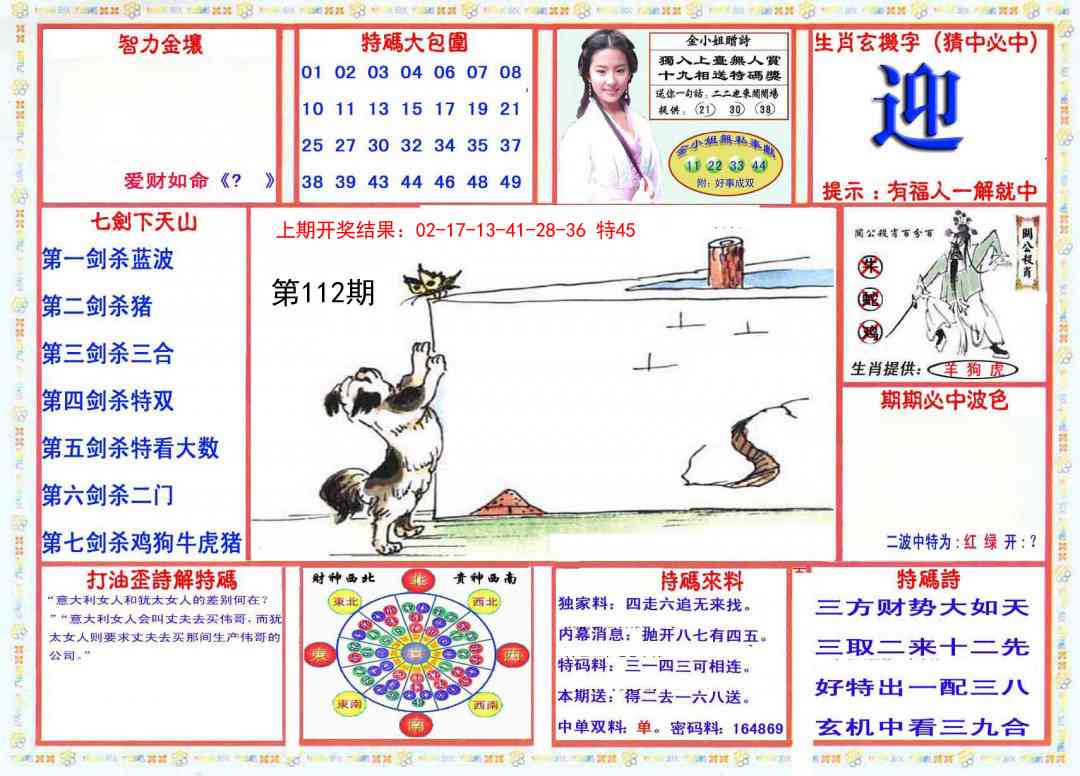 智力金壤
爱财如命《? 》
特碼大包圍
01 02 03 04 06 07 08
10 11 13 15 17 19 21
25 27 30 32 34 35 37
38 39 43 44 46 48 49
金小姐贈詩
獨入上臺無人賞
十九相送特碼獎
送你一句話:二二老東鬧鬧場
提供:21 30 38
金小姐無私奉獻
11 22 33 44
附:好事成双
生肖玄機字(猜中必中)
迎
提示:有福人一解就中
七劍下天山
第一剑杀蓝波
第二剑杀猪
第三剑杀三合
第四剑杀特双
第五剑杀特看大数
第六剑杀二门
第七剑杀鸡狗牛虎猪
上期开奖结果:02-17-13-41-28-36 特45
第112期
關公殺肖百分百
關公殺肖
牛
蛇
鸡
生肖提供:羊 狗 虎
期期必中波色
二波中特为:红 绿 开:?
打油歪詩解特碼
“意大利女人和犹太女人的差别何在?
”“意大利女人会叫丈夫去买伟哥,而犹
太女人则要求丈夫去买那间生产伟哥的
公司。”
财神西北 贵神西南
北
東北 西北
東 西
東南 西南
南
特碼來料
独家料:四走六追无来找。
内幕消息:抛开八七有四五。
特码料:三一四三可相连。
本期送:得二去一六八送。
中单双料:单。密码料:164869
特碼詩
三方财势大如天
三取二来十二先
好特出一配三八
玄机中看三九合